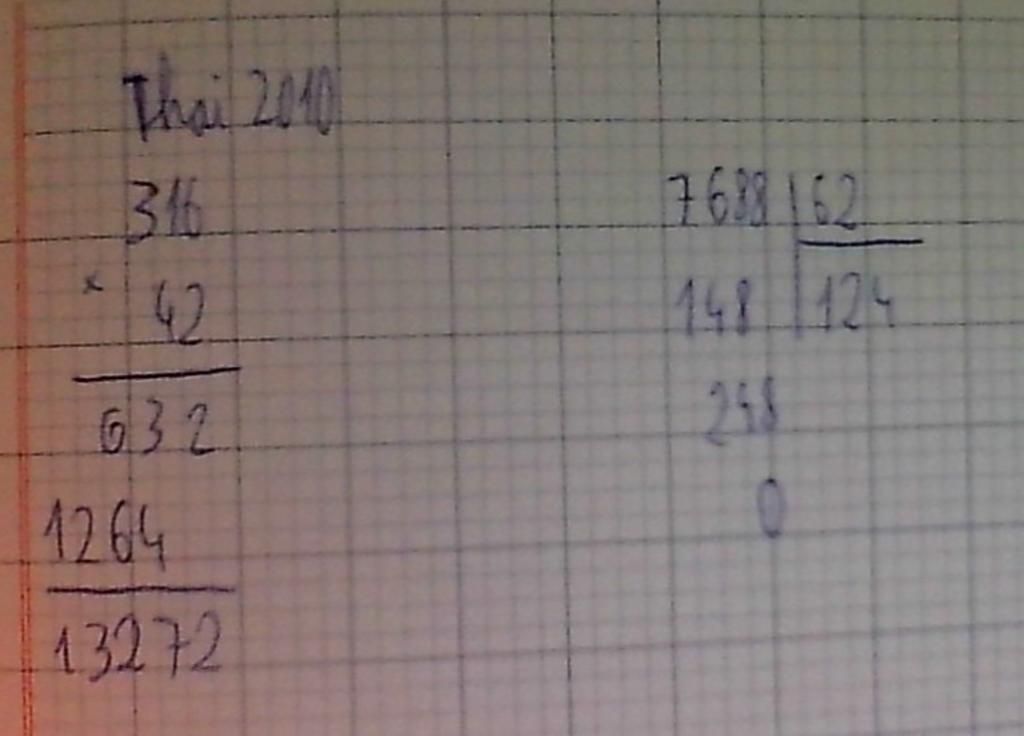 Thai 2010
316
× 42
632
1264
13272
7688 62
148 124
248
0